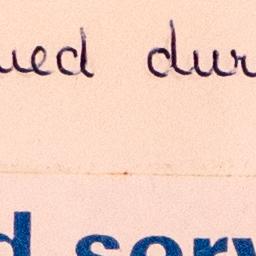 ued dur
d serv